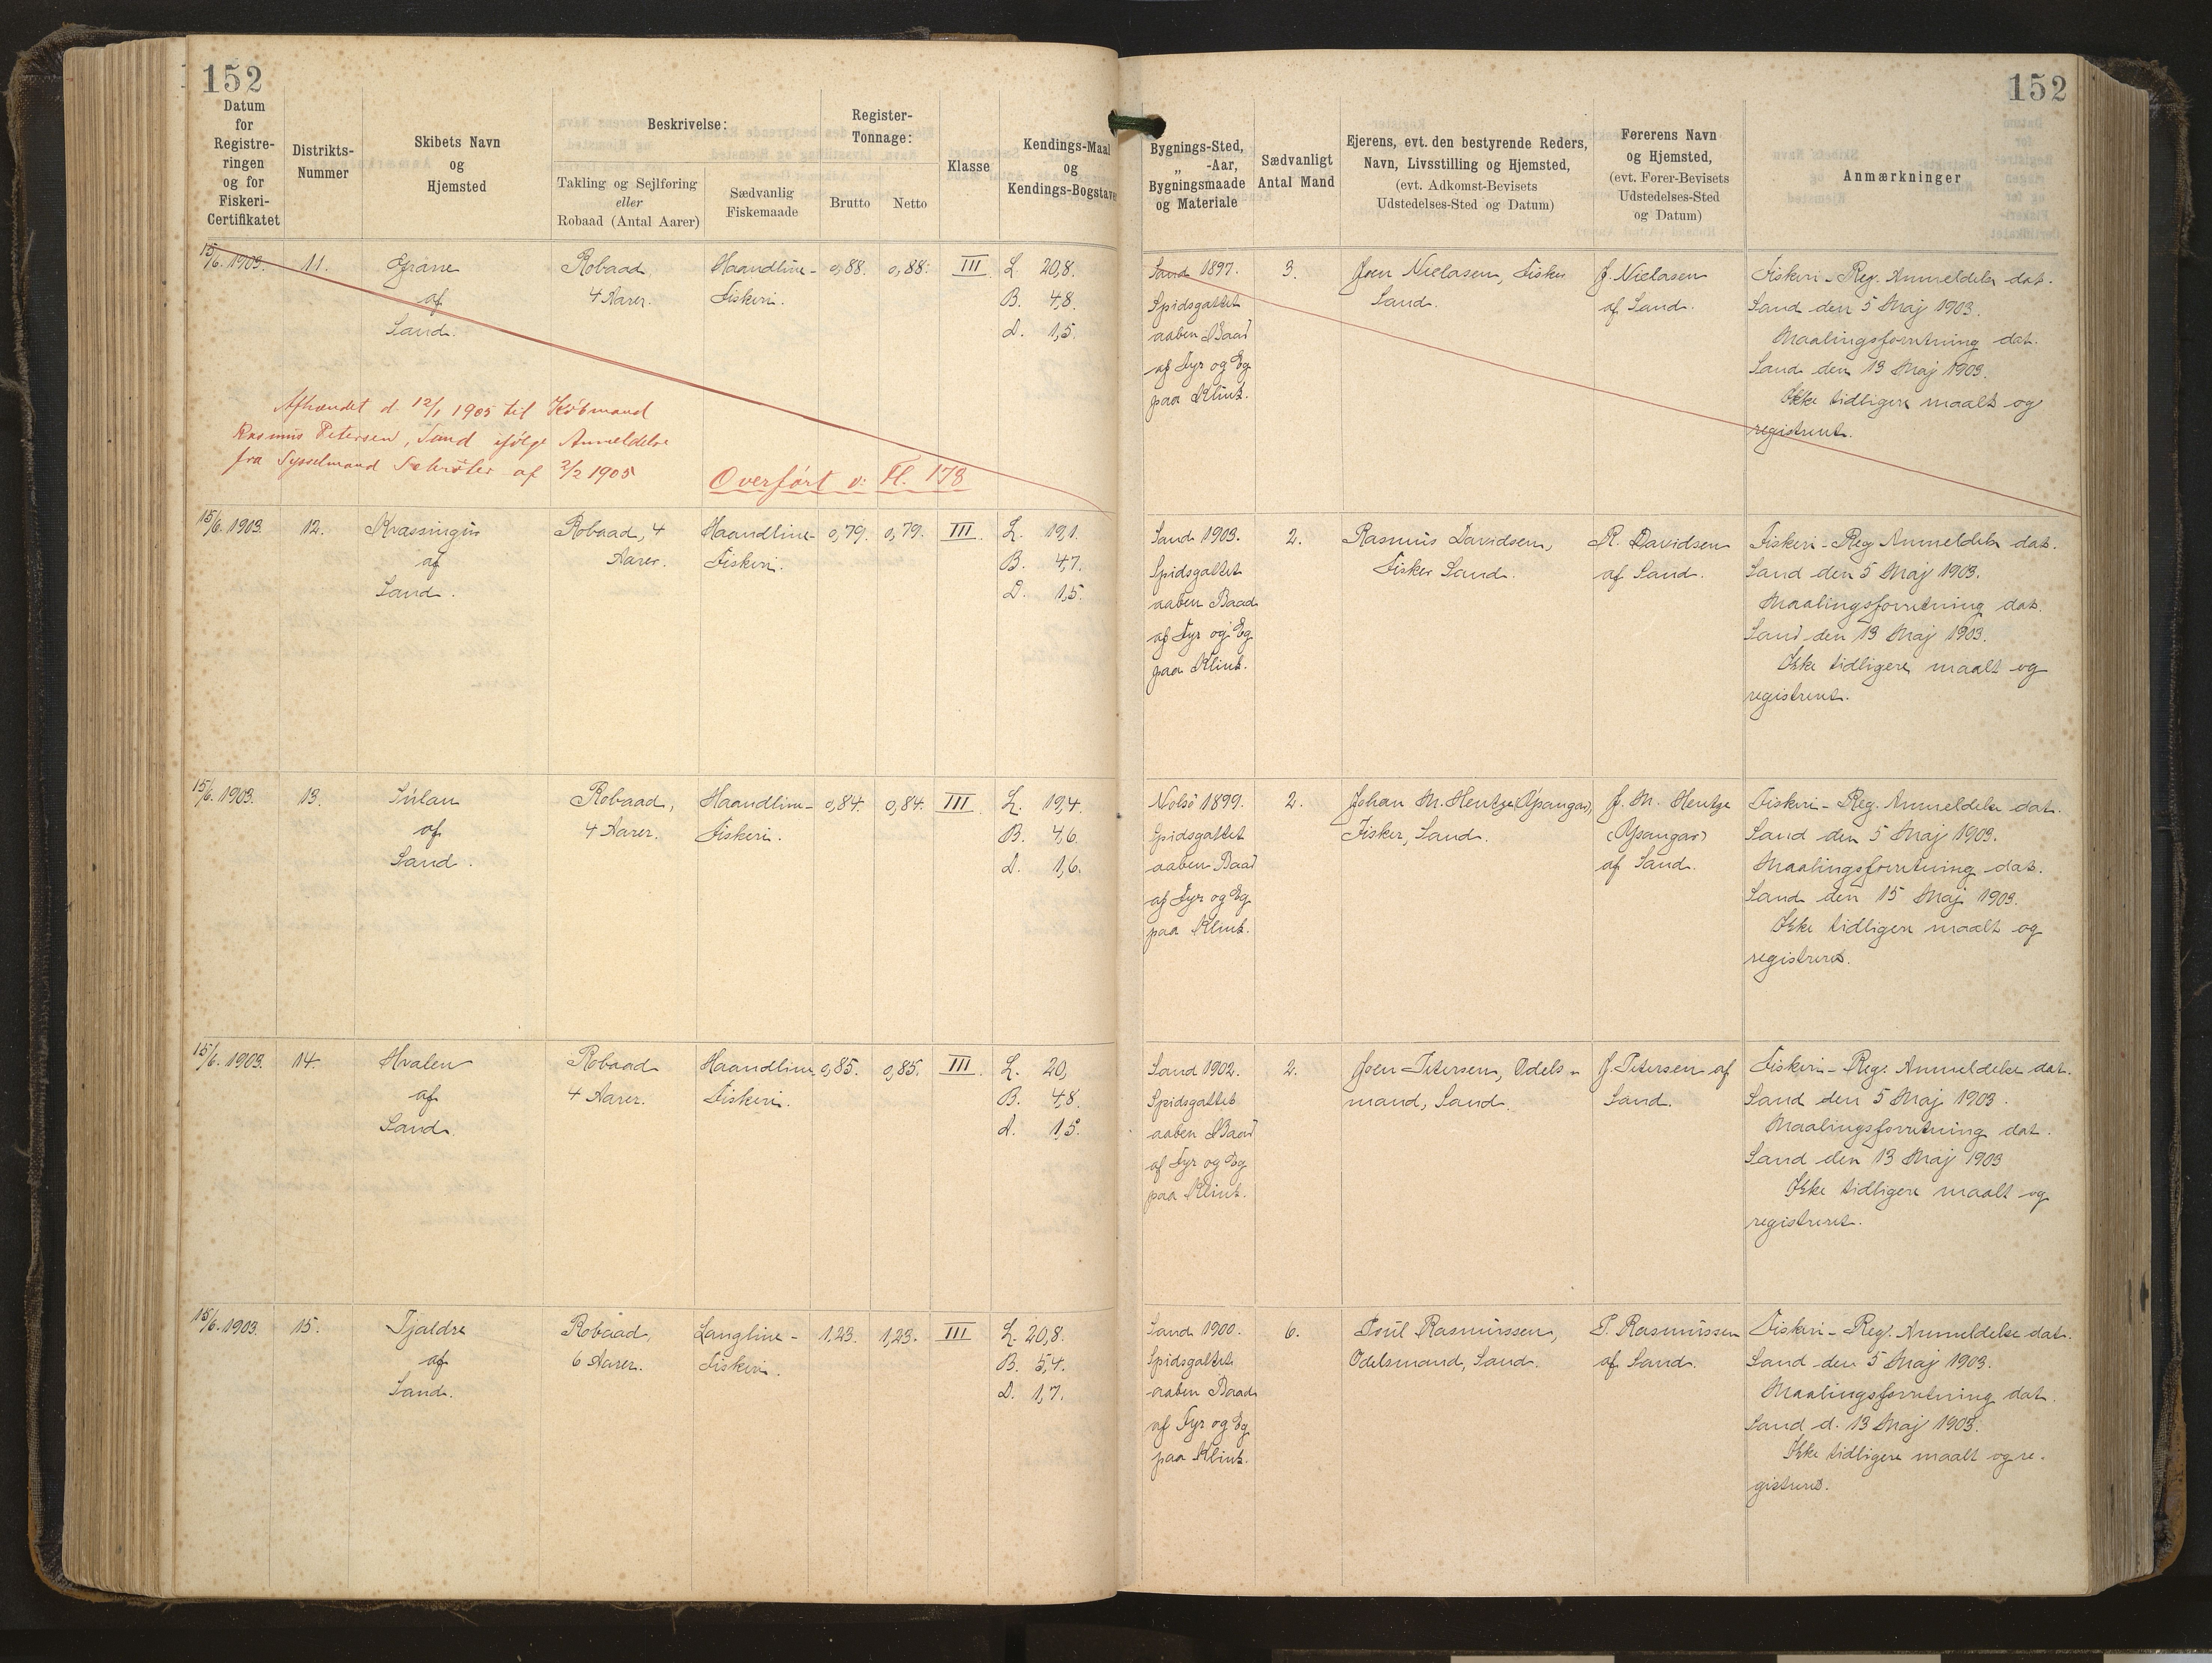 152
152
Datum
for
Registre-
ringen
og for
Fiskeri-
Certifikatet
Distrikts-
Nummer
Skibets Navn
og
Hjemsted
Beskrivelse:
Takling og Sejlføring
eller
Robaad (Antal Aarer)
Sædvanlig
Fiskemaade
Register-
Tonnage:
Brutto
Netto
Klasse
Kendings-Maal
og
Kendings-Bogstaver
Bygnings-Sted,
„ -Aar,
Bygningsmaade
og Materiale
Sædvanligt
Antal Mand
Ejerens, evt. den bestyrende Reders,
Navn, Livsstilling og Hjemsted,
(evt. Adkomst-Bevisets
Udstedelses-Sted og Datum)
Førerens Navn
og Hjemsted,
(evt. Fører-Bevisets
Udstedelses-Sted
og Datum)
Anmærkninger
15/6. 1903. 11. Grane
af
Sand.
Robaad
4 Aarer.
Haandline-
Fiskeri.
0,88. 0,88. III
L. 20,8.
B. 4,8.
D. 1,5.
Sand 1897.
Spidsgattet
aaben Baad
af Fyr og Eg
paa Klink.
3.
Joen Nielasen, Fisker
Sand.
J. Nielasen
af Sand.
Fiskeri-Reg. Anmeldelse dat.
Sand den 5 Maj 1903.
Maalingsforretning dat.
Sand den 13 Maj 1903.
Ikke tidligere maalt og
registreret.
Afhændet d. 12/1 1905 til Købmand
Rasmus Petersen, Sand ifølge Anmeldelse
fra Sysselmand Schrøter af 2/2 1905
Overført v: Fl. 178
15/6. 1903. 12. Kvassingur
af
Sand.
Robaad, 4
Aarer.
Haandline-
Fiskeri.
0,79. 0,79. III
L. 19,1.
B. 4,7.
D. 1,5.
Sand 1903.
Spidsgattet
aaben Baad
af Fyr og Eg
paa Klink.
2.
Rasmus Davidsen,
Fisker Sand.
R. Davidsen
af Sand.
Fiskeri-Reg Anmeldelse dat.
Sand den 5 Maj 1903.
Maalingsforretning dat.
Sand den 13 Maj 1903.
Ikke tidligere maalt og
registreret.
15/6. 1903. 13. Súlan
af
Sand.
Robaad,
4 Aarer.
Haandline-
Fiskeri.
0,84. 0,84. III
L. 19,4.
B. 4,6.
D. 1,6.
Nolsö 1899.
Spidsgattet
aaben Baad
af Fyr og Eg
paa Klink.
2.
Johan M. Hentze (Ypangar),
Fisker, Sand.
J. M. Hentze
(Ypangar)
af Sand.
Fiskeri-Reg. Anmeldelse dat.
Sand den 5 Maj 1903.
Maalingsforretning dat.
Sand den 15 Maj 1903.
Ikke tidligere maalt og
registreret.
15/6. 1903. 14. Hvalen
af
Sand.
Robaad
4 Aarer.
Haandline
Fiskeri.
0,85. 0,85. III
L. 20,
B. 4,8.
D. 1,5.
Sand 1902.
Spidsgattet
aaben Baad
af Fyr og Eg
paa Klink.
2.
Joen Petersen, Odels-
mand, Sand.
J. Petersen af
Sand.
Fiskeri-Reg. Anmeldelse dat.
Sand den 5 Maj 1903.
Maalingsforretning dat.
Sand den 13 Maj 1903
Ikke tidligere maalt og
registreret.
15/6. 1903. 15. Tjaldre
af
Sand.
Robaad,
6 Aarer.
Langline-
Fiskeri.
1,23. 1,23. III
L. 20,8.
B. 5,4.
D. 1,7.
Sand 1900.
Spidsgattet
aaben Baad
af Fyr og Eg
paa Klink.
6.
Poul Rasmussen,
Odelsmand, Sand.
P. Rasmussen
af Sand.
Fiskeri-Reg. Anmeldelse dat.
Sand den 5 Maj 1903.
Maalingsforretning dat.
Sand d. 13 Maj 1903.
Ikke tidligere maalt og re-
gistreret.